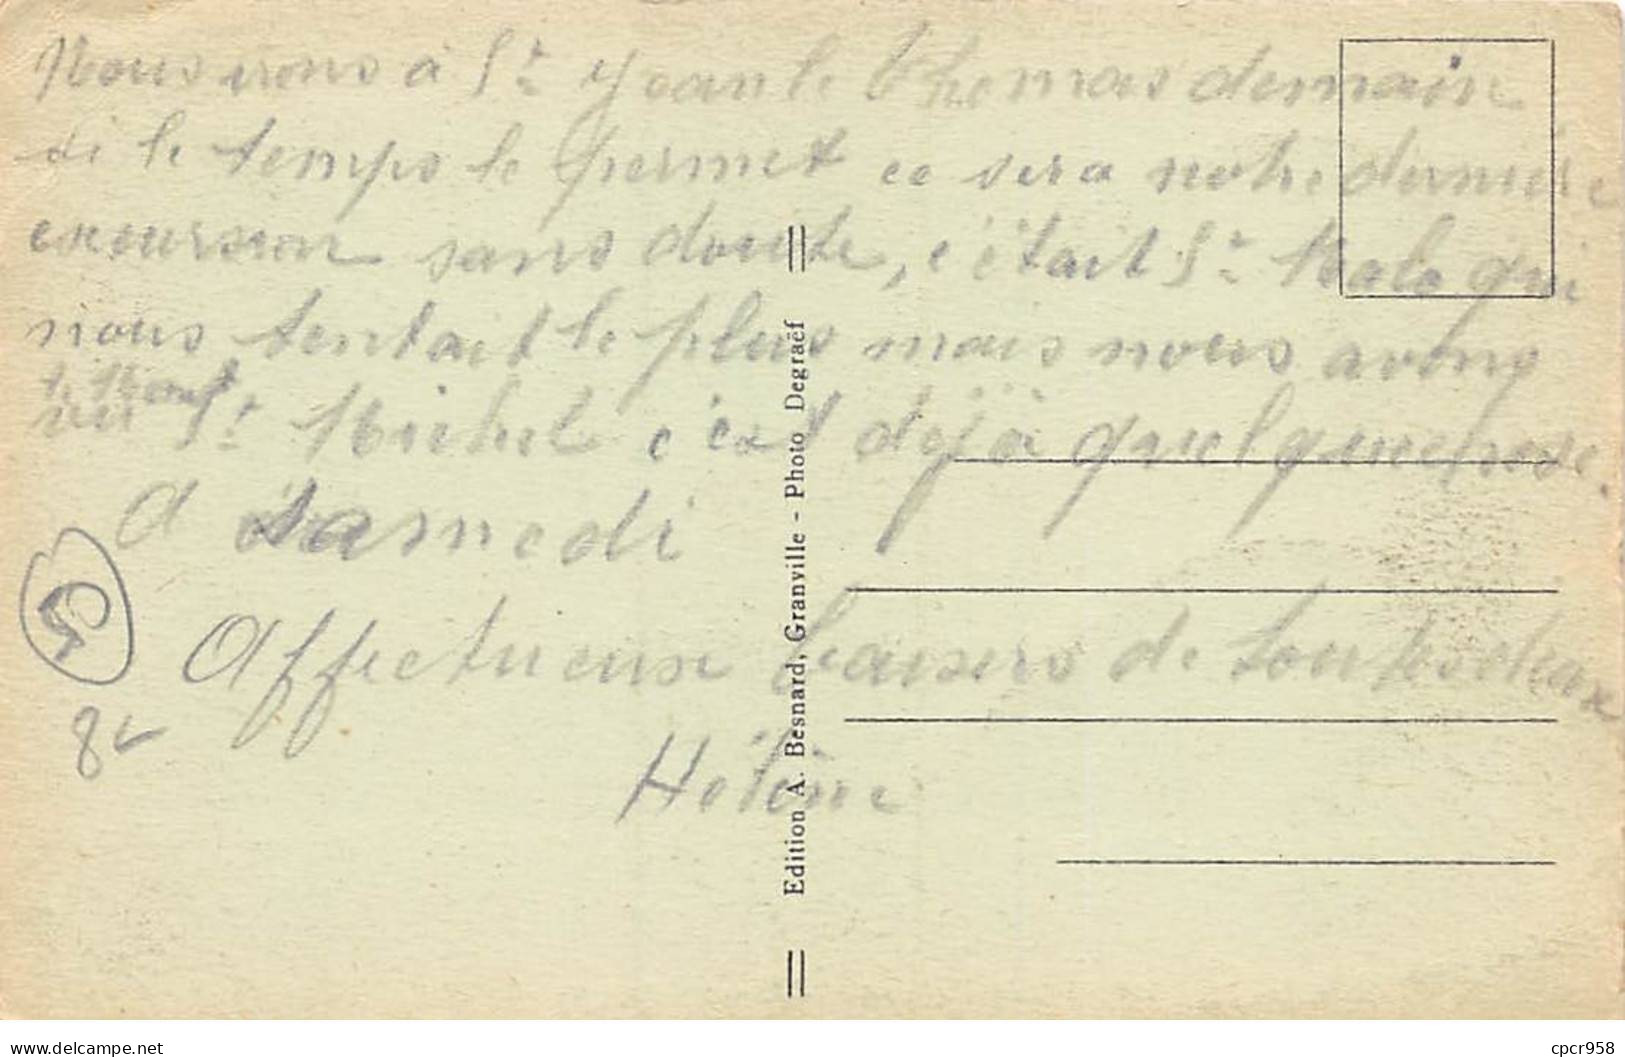 Nous irons à St Jean le Thomas demain
si le temps le permet ce sera notre dernière
excursion sans doute, c'était St Malo qui
nous tentait le plus mais nous avons
vu le Mont St Michel c'est déjà quelquechose.
A Samedi
Affectueux baisers de toutes deux
Hélène
82
Edition A. Besnard, Granville - Photo Degraëf
www.delcampe.net
cpcr958